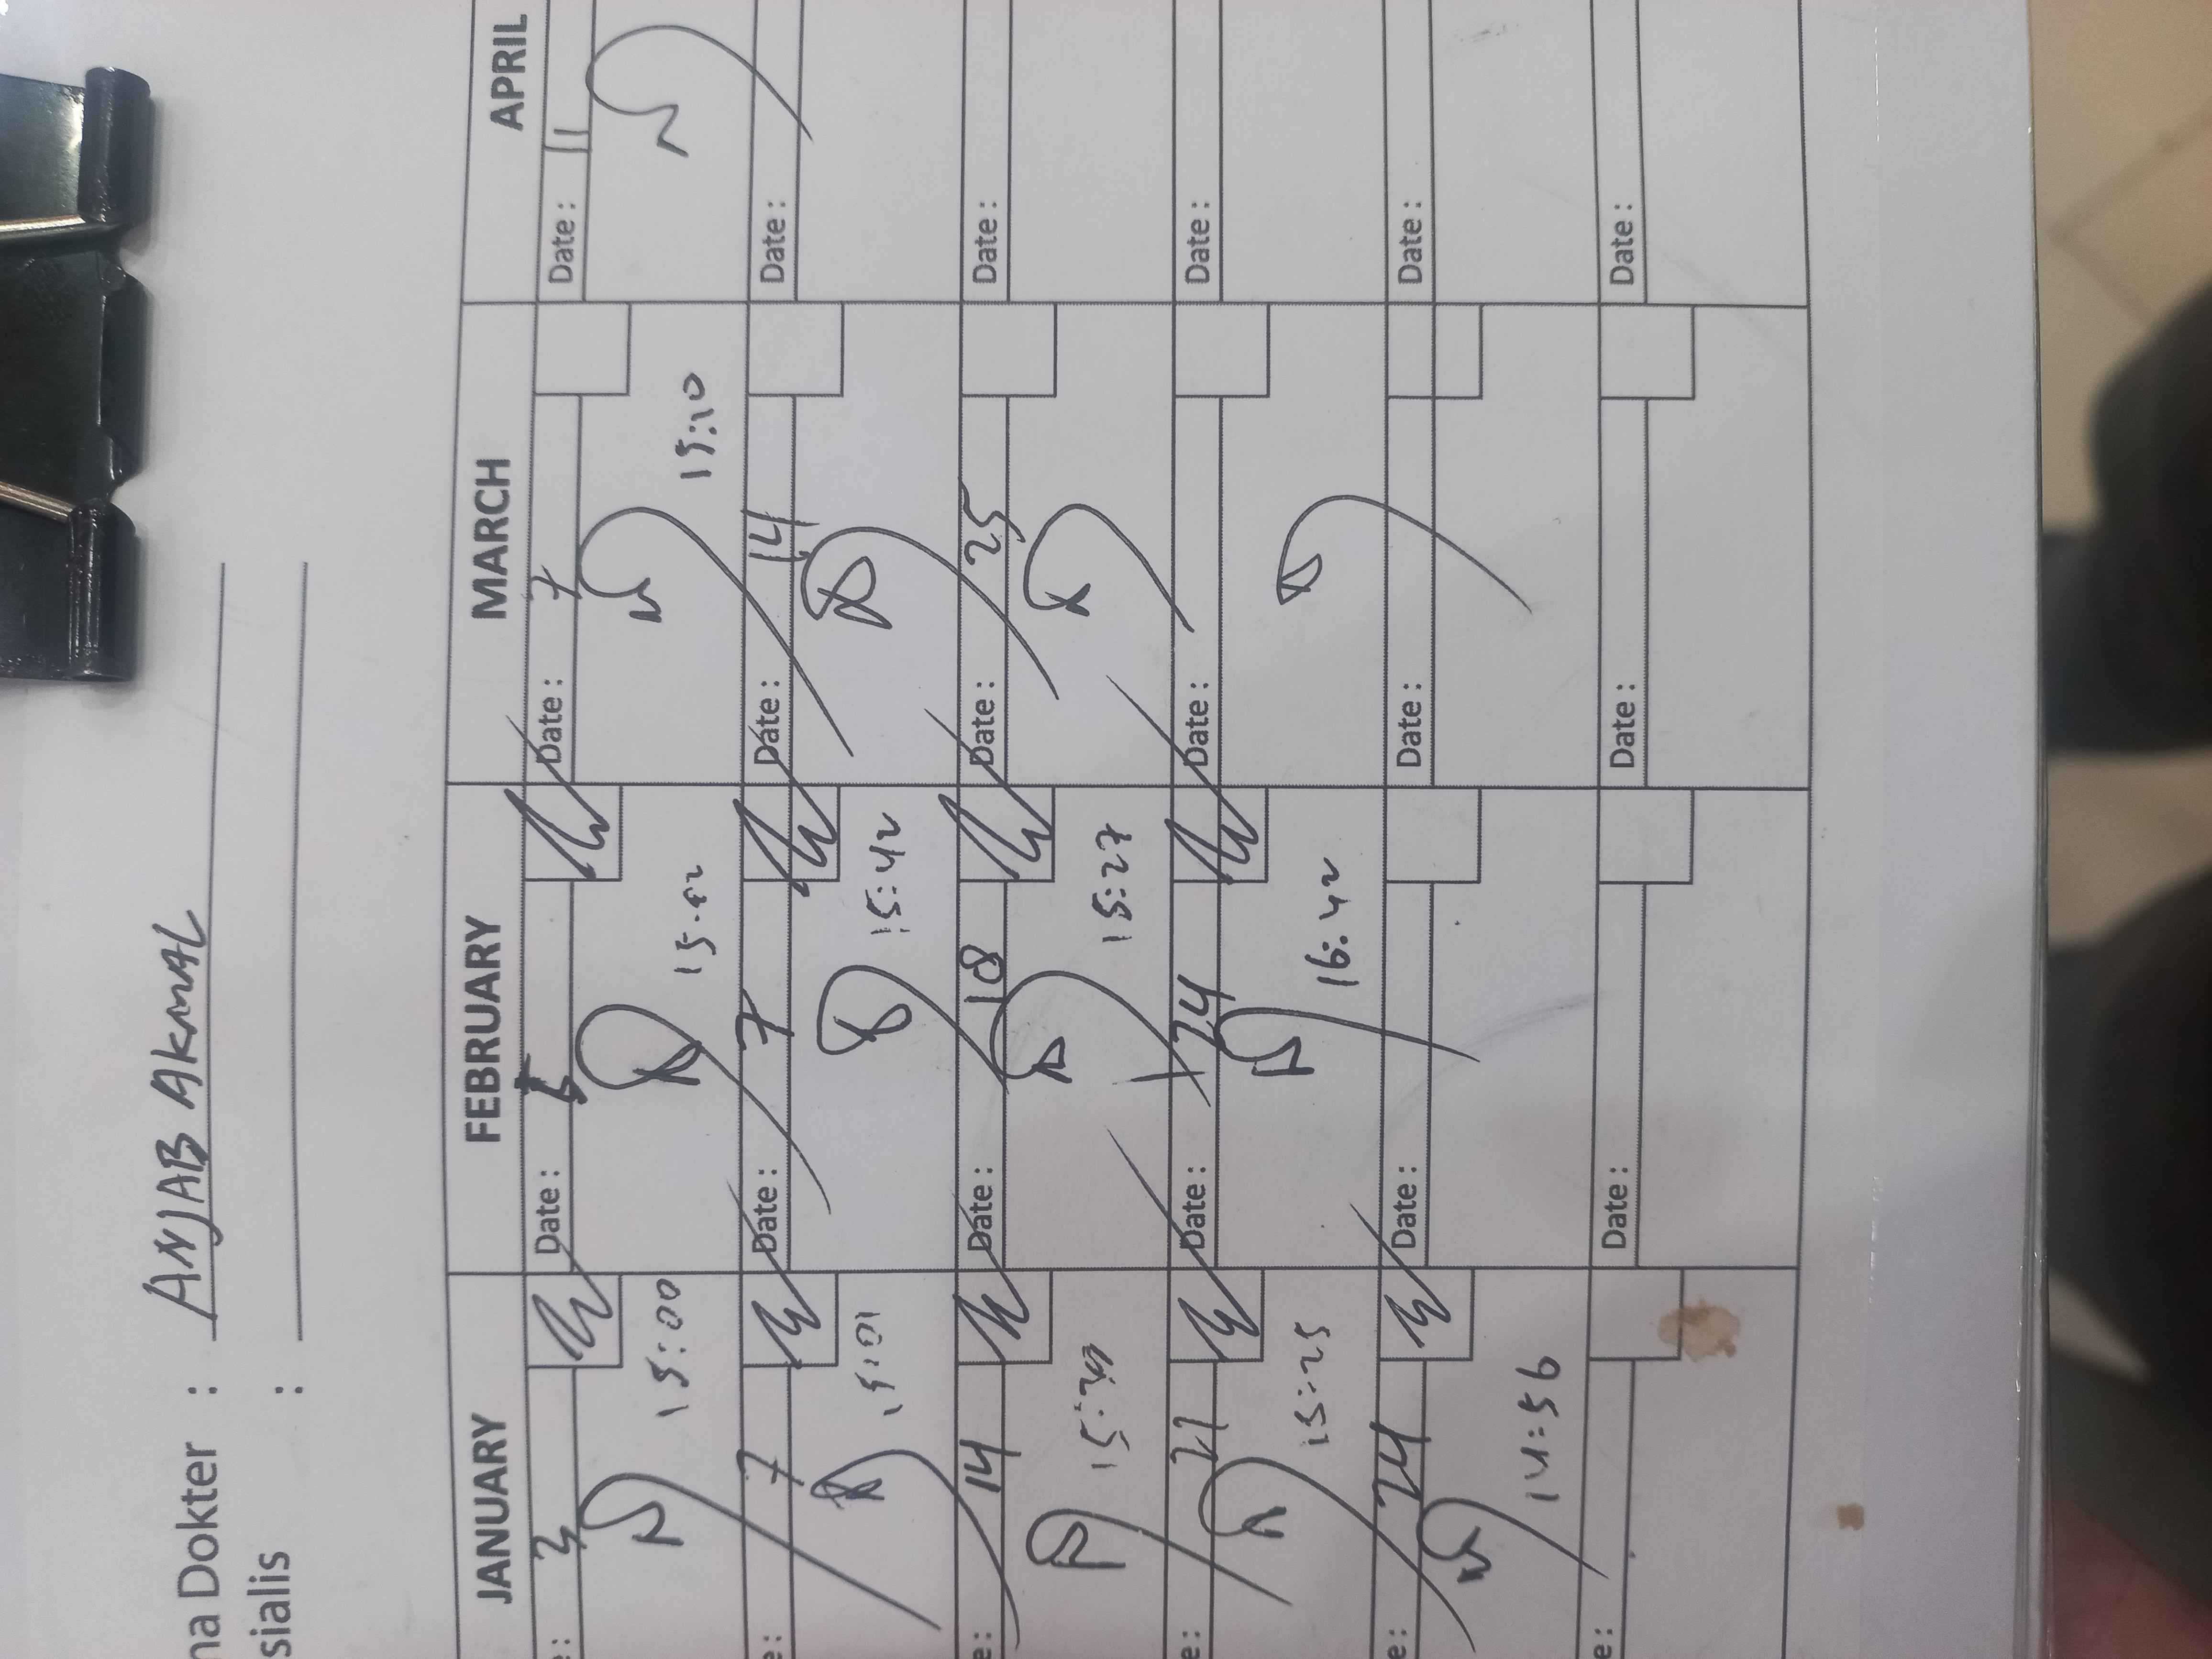 ma Dokter : ANJAB AKMAL
sialis :
JANUARY FEBRUARY MARCH APRIL
e: Date: Date: 7 Date: 11
15:00 15:10
e: 7 Date: 7 Date: 14 Date:
15:01 15:42
e: 14 Date: 18 Date: 25 Date:
15:27
e: 21 Date: 24 Date: Date:
15:25 16:42
e: 24 Date: Date: Date:
14:56
e: Date: Date: Date: